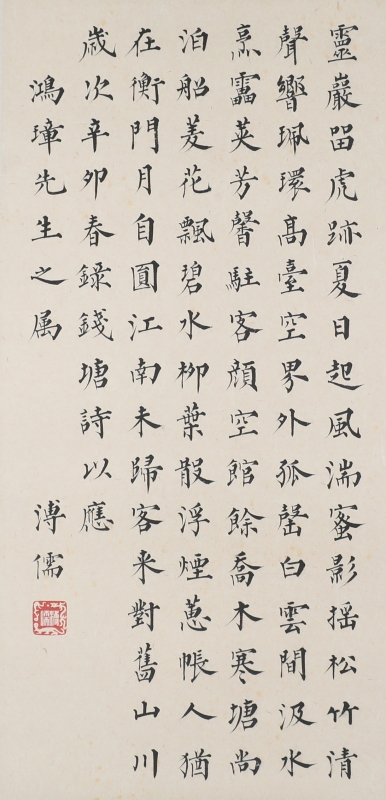 靈巖畱虎跡夏日起風湍蜜影搖松竹清
聲響珮環髙臺空界外孤罄白雲間汲水
烹靁英芳馨駐客顏空館餘喬木寒塘尚
泊船菱花飄碧水柳葉散浮煙蕙帳人猶
在衡門月自圓江南未歸客来對舊山川
歲次辛卯春錄錢塘詩以應
鴻璋先生之属 溥儒